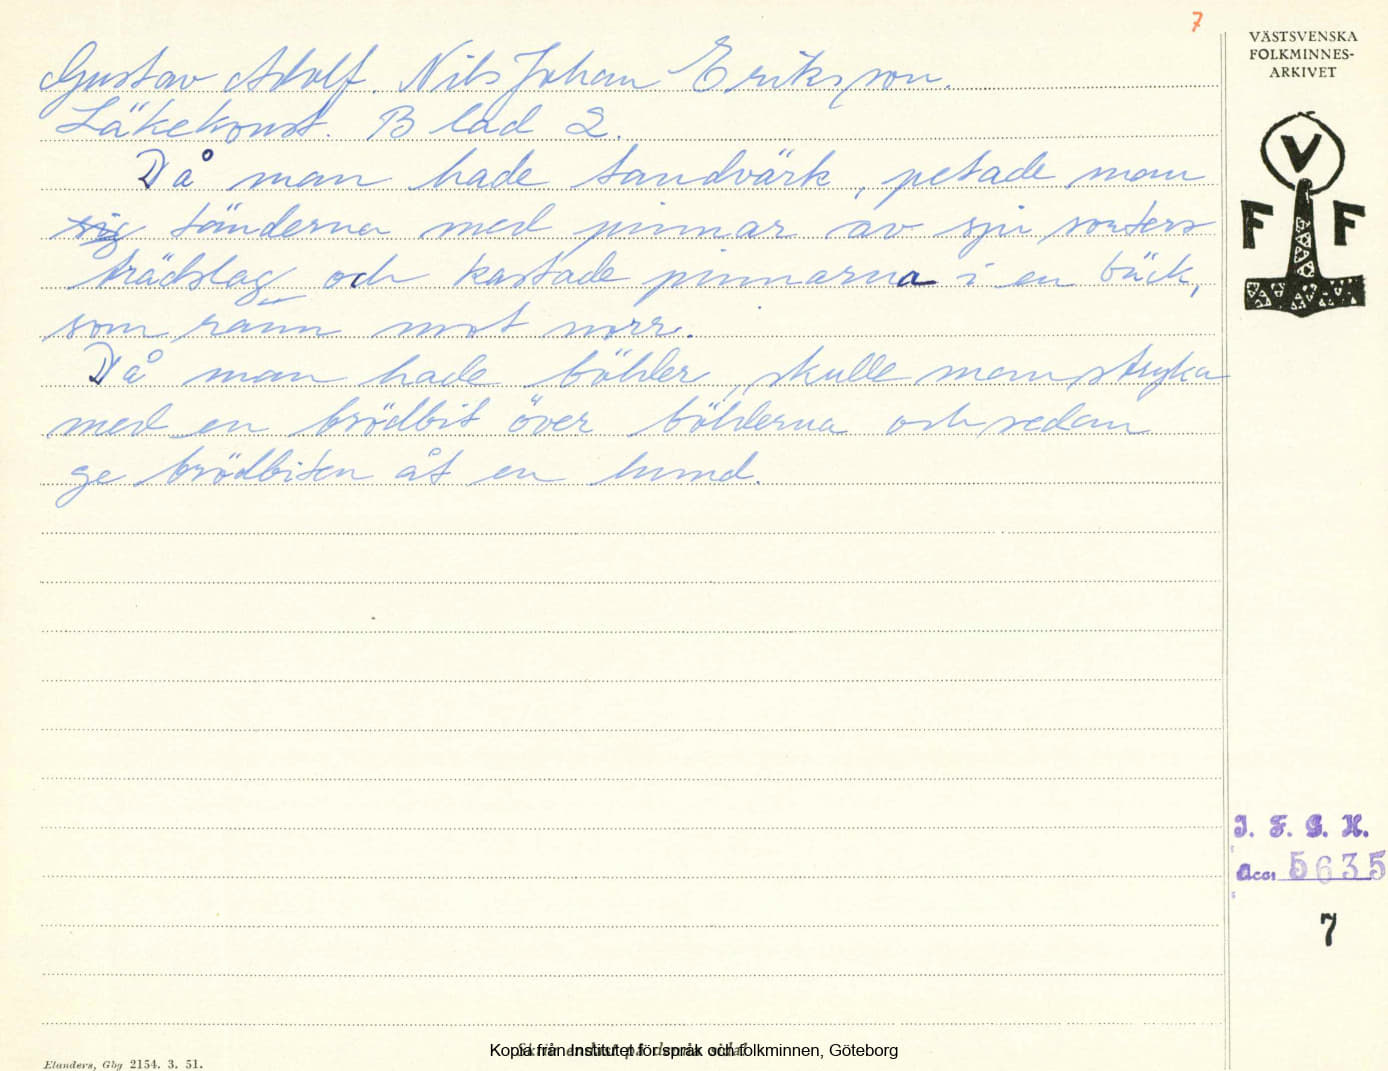 7
VÄSTSVENSKA
FOLKMINNES-
ARKIVET
V
F F
Gustav Adolf. Nils Johan Eriksson.
Läkekonst. Blad 2.
Då man hade tandvärk, petade man
sig tänderna med pinnar av sju sorters
trädslag och kastade pinnarna i en bäck,
som rann mot norr.
Då man hade bölder, skulle man stryka
med en brödbit över bölderna och sedan
ge brödbiten åt en hund.
I. F. G. H.
acc. 5635
7
Skriv endast på denna sida!
Kopia från Institutet för språk och folkminnen, Göteborg
Elanders, Gbg 2154. 3. 51.